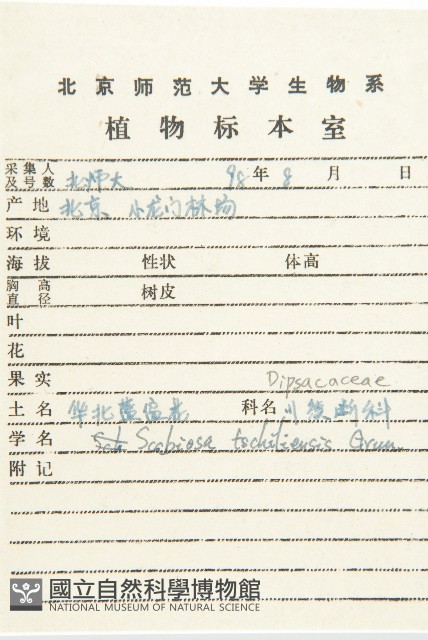 北京师范大学生物系
植物标本室
采集人及号数 北师大 98年8月 日
产地 北京、小龙门林场
环境
海拔 性状 体高
胸高直径 树皮
叶
花
果实 Dipsacaceae
土名 华北蓝盆花 科名 川续断科
学名 Scabiosa tschiliensis Grun.
附记
國立自然科學博物館
NATIONAL MUSEUM OF NATURAL SCIENCE